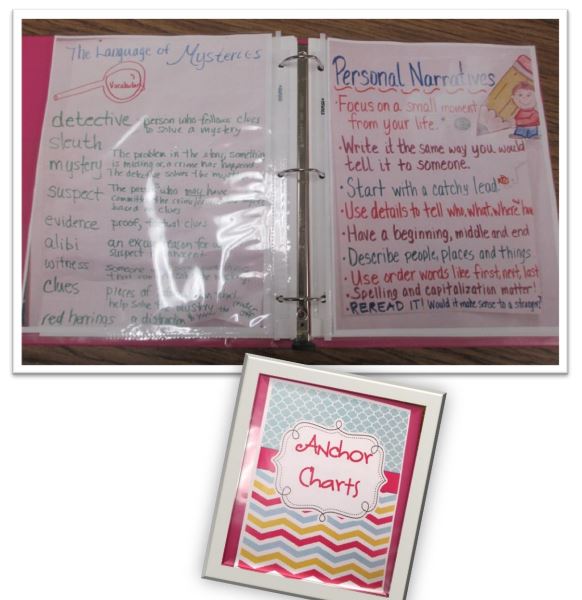 The Language of Mysteries
Vocabulary
detective person who follows clues
to solve a mystery
sleuth
mystery The problem in the story, something
is missing or a crime has happened.
The detective solves the mystery
suspect The person who may have
committed the crime
based on clues
evidence proof, clues
alibi an excuse/reason for a
suspect
witness someone
clues pieces of
help solve the mystery
red herrings a distraction
Personal Narratives
Focus on a small moment
from your life.
• Write it the same way you would
tell it to someone.
• Start with a catchy lead.
• Use details to tell who, what, where, how
• Have a beginning, middle and end
• Describe people, places and things
• Use order words like first, next, last
• Spelling and capitalization matter!
• REREAD IT! Would it make sense to a stranger?
Anchor
Charts